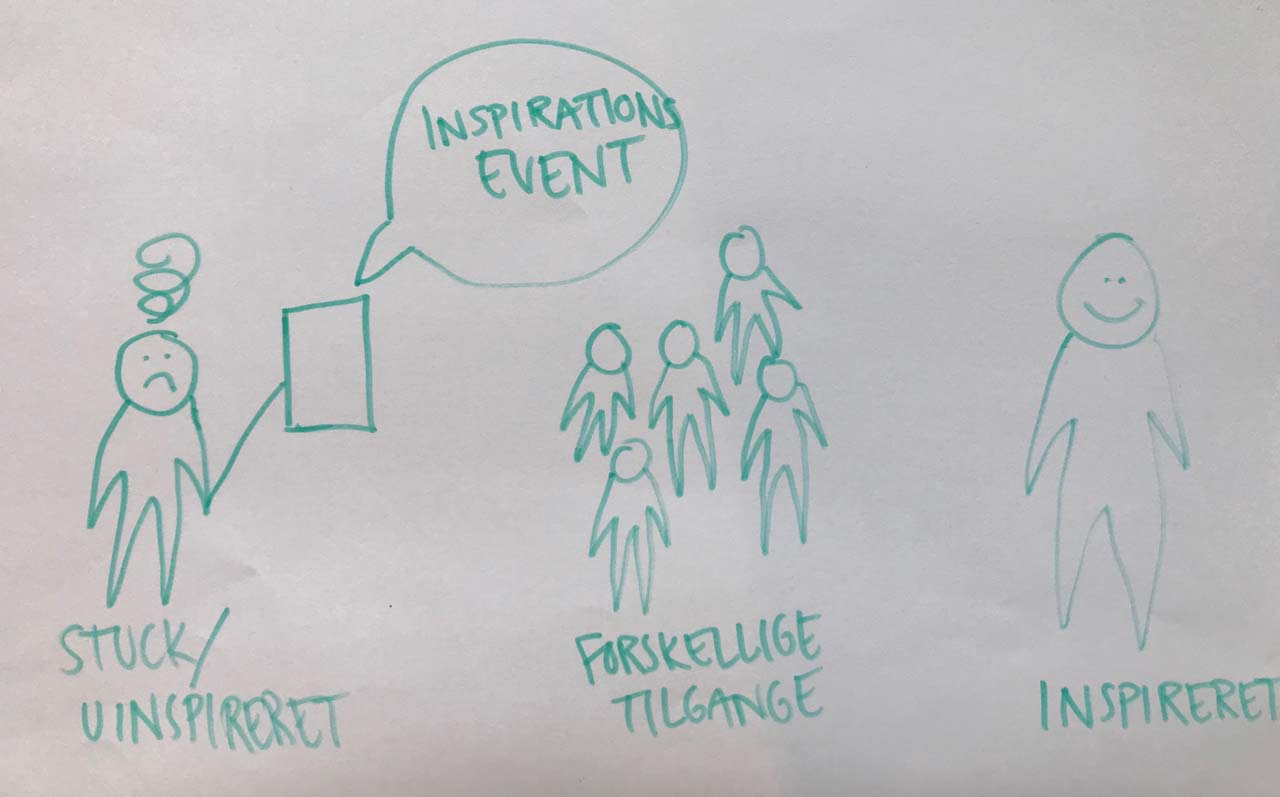 INSPIRATIONS
EVENT
STUCK/
UINSPIRERET
FORSKELLIGE
TILGANGE
INSPIRERET